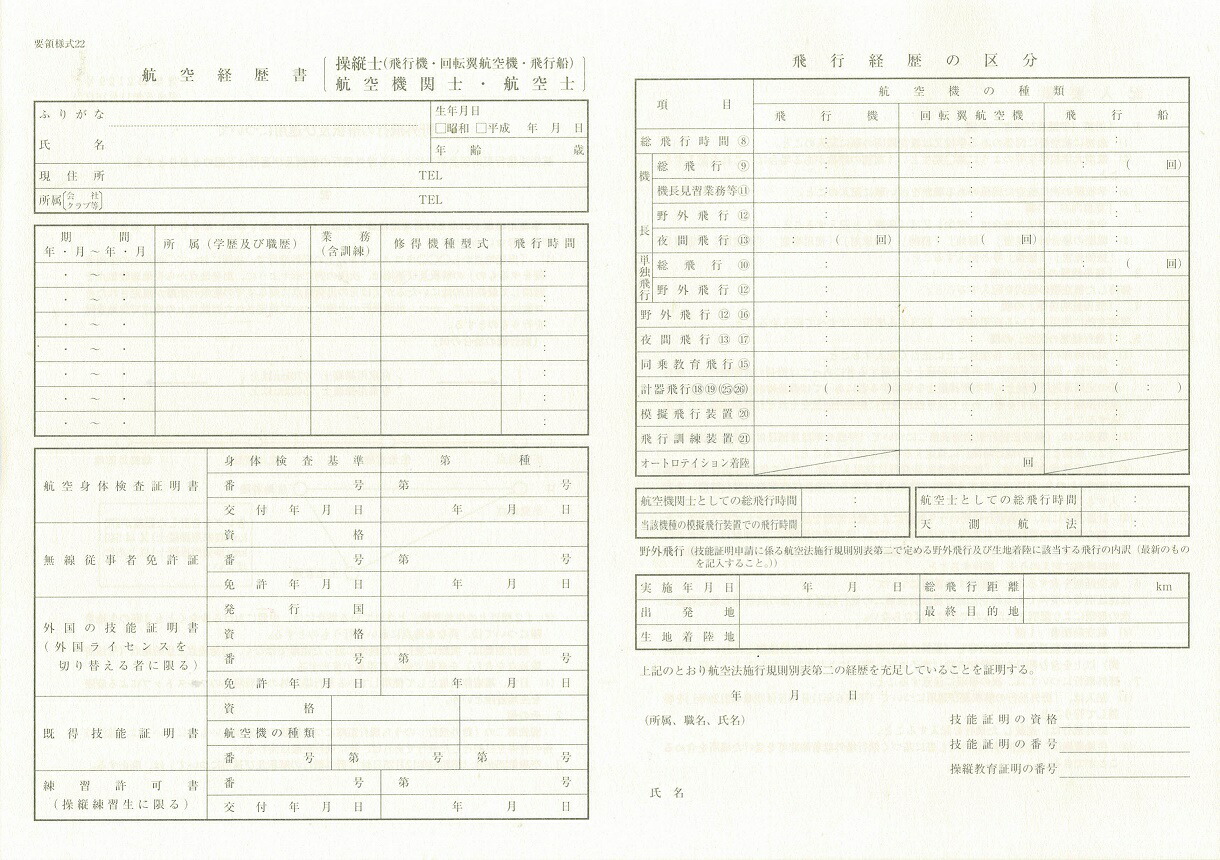 要領様式22
航空経歴書 操縦士(飛行機・回転翼航空機・飛行船)
航空機関士・航空士
ふりがな 生年月日
□昭和 □平成 年 月 日
氏名 年齢 歳
現住所 TEL
所属(会社クラブ等) TEL
期間 所属(学歴及び職歴) 業務 修得機種型式 飛行時間
年・月~年・月 (含訓練)
・ ~ ・ :
・ ~ ・ :
・ ~ ・ :
・ ~ ・ :
・ ~ ・ :
・ ~ ・ :
・ ~ ・ :
航空身体検査証明書 身体検査基準 第 種
番号 第 号
交付年月日 年 月 日
無線従事者免許証 資格
番号 第 号
免許年月日 年 月 日
外国の技能証明書 発行国
(外国ライセンスを 資格
切り替える者に限る) 番号 第 号
免許年月日 年 月 日
既得技能証明書 資格
航空機の種類
番号 第 号 第 号
練習許可書 番号 第 号
(操縦練習生に限る) 交付年月日 年 月 日
飛行経歴の区分
項目 航空機の種類
飛行機 回転翼航空機 飛行船
総飛行時間⑧ : : :
機長 総飛行⑨ : : : ( 回)
機長見習業務等⑪ : : :
野外飛行⑫ : : :
夜間飛行⑬ : ( 回) : ( 回) :
単独飛行 総飛行⑩ : : : ( 回)
野外飛行⑫ : : :
野外飛行⑫⑯ : : :
夜間飛行⑬⑰ : : :
同乗教育飛行⑮ : : :
計器飛行⑱⑲㉕㉖ : ( : ) : ( : ) : ( : )
模擬飛行装置⑳ : : :
飛行訓練装置㉑ : : :
オートロテイション着陸 回
航空機関士としての総飛行時間 : 航空士としての総飛行時間 :
当該機種の模擬飛行装置での飛行時間 : 天測航法 :
野外飛行(技能証明申請に係る航空法施行規則別表第二で定める野外飛行及び生地着陸に該当する飛行の内訳(最新のもの
を記入すること。))
実施年月日 年 月 日 総飛行距離 km
出発地 最終目的地
生地着陸地
上記のとおり航空法施行規則別表第二の経歴を充足していることを証明する。
年 月 日
(所属、職名、氏名) 技能証明の資格
技能証明の番号
操縦教育証明の番号
氏名